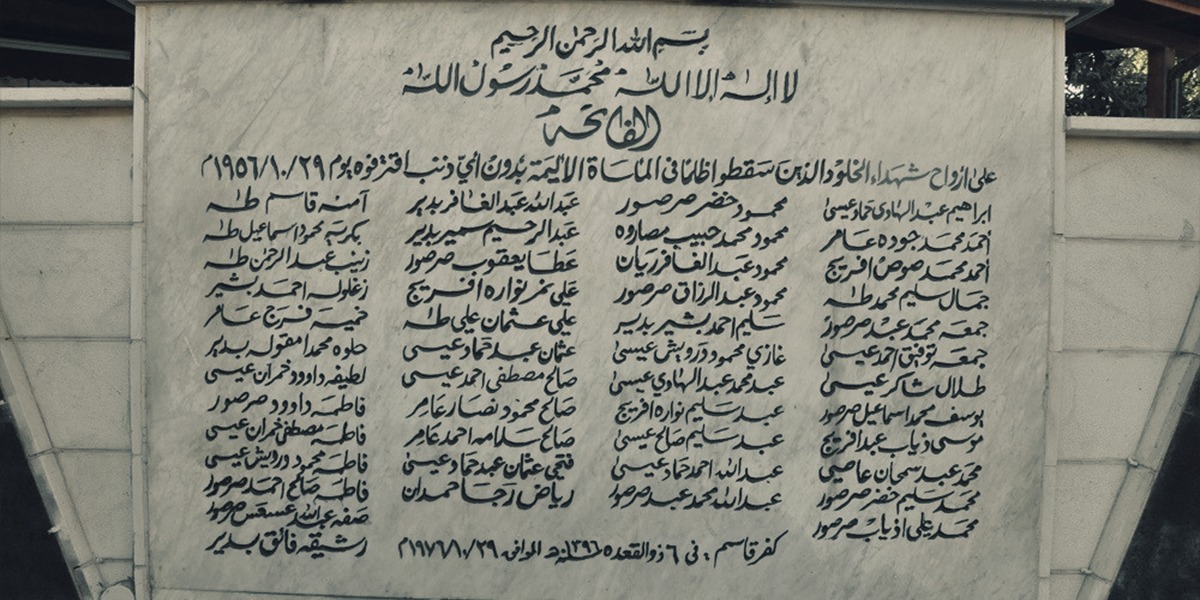 بسم الله الرحمن الرحيم
لا اله الا الله محمد رسول الله
الفاتحة
على ارواح شهداء الخلود الذين سقطوا ظلما في المأساة الأليمة بدون أي ذنب اقترفوه يوم ١٩٥٦/١٠/٢٩م
ابراهيم عبد الهادي حماد عيسى محمود خضر صرصور عبد الله عبد الغافر بدير آمنه قاسم طه
احمد محمد جوده عامر محمود محمد حبيب مصاروه عبد الرحيم سمير بدير بكريه محمود اسماعيل طه
احمد محمد صوص افريج محمود عبد الغافر ريان عطا يعقوب صرصور زينب عبد الرحمن طه
جمال سليم محمد طه محمود عبد الرزاق صرصور علي نمر نواره افريج زغلوله احمد بشير
جمعه محمد عبد صرصور سليم احمد بشير بدير علي عثمان علي طه خميسه فرج عامر
جمعه توفيق احمد عيسى غازي محمود درويش عيسى عثمان عبد حماد عيسى حلوه محمد بدير
طلال شاكر عيسى عبد محمد عبد الهادي عيسى صالح مصطفى احمد عيسى لطيفه داوود عيسى
يوسف محمد اسماعيل صرصور عبد سليم نواره افريج صالح محمود نصار عامر فاطمه داوود صرصور
موسى ذياب عبد افريج عبد سليم صالح عيسى صالح سلامه احمد عامر فاطمه مصطفى عيسى
محمد عبد سمحان عاصي عبد الله احمد حماد عيسى فتحي عثمان عبد حماد عيسى فاطمه محمود درويش عيسى
محمد سليم خضر صرصور عبد الله محمد عبد صرصور رياض رجا حمدان فاطمه صالح احمد صرصور
محمد علي اذياب صرصور صفه عبد الله صرصور
رشيقه فائق بدير
كفر قاسم : في ٦ ذو القعده سنة ١٣٩٦هـ الموافق ١٩٧٦/١٠/٢٩م